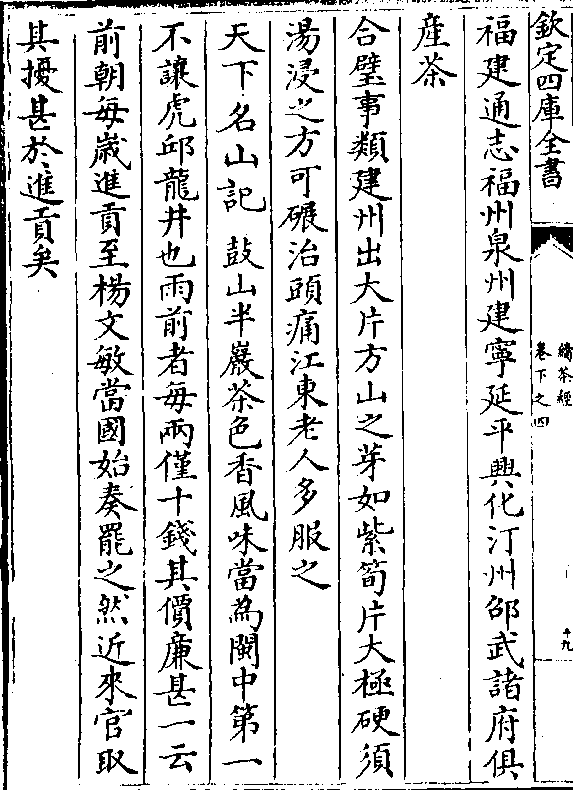 欽定四庫全書
續茶經
卷下之四
十九
福建通志福州泉州建寧延平興化汀州邵武諸府俱
產茶
合璧事類建州出大片方山之芽如紫筍片大極硬須
湯浸之方可碾治頭痛江東老人多服之
天下名山記 鼓山半巖茶色香風味當為閩中第一
不讓虎邱龍井也雨前者每兩僅十錢其價廉甚一云
前朝每歲進貢至楊文敏當國始奏罷之然近來官取
其擾甚於進貢矣